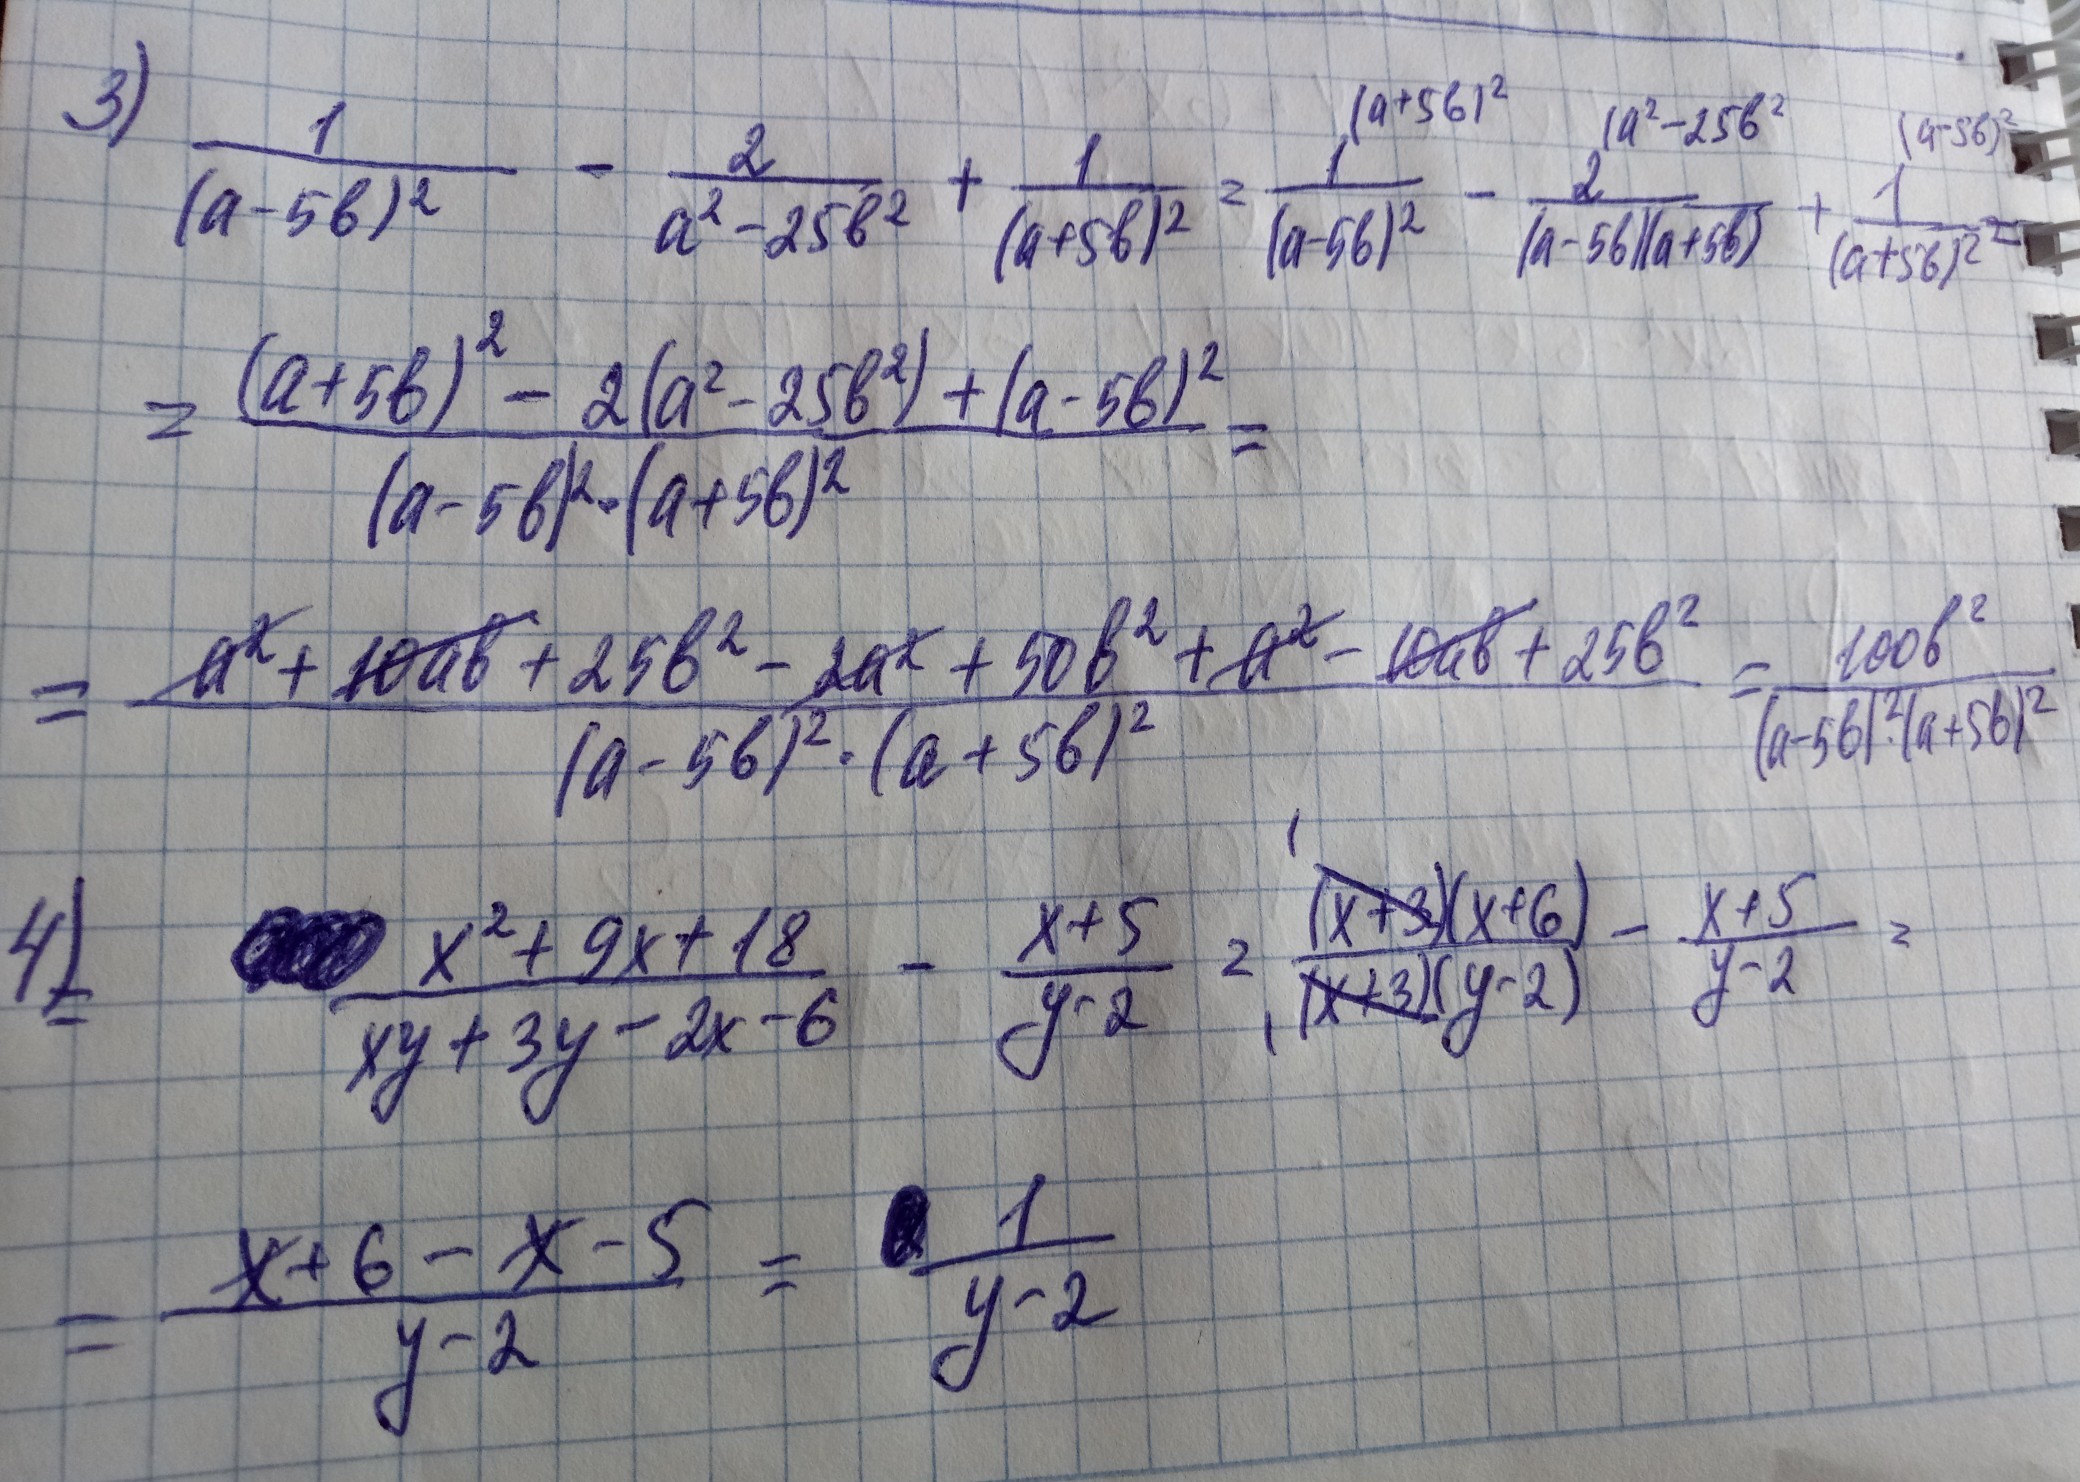 3) 1/(a-5b)² - 2/(a²-25b²) + 1/(a+5b)² = 1/(a-5b)² (a+5b)² - 2/((a-5b)(a+5b)) (a²-25b² + 1/(a+5b)² (a-5b)² =
= ((a+5b)² - 2(a²-25b²) + (a-5b)²)/((a-5b)²·(a+5b)²) =
= (a² + 10ab + 25b² - 2a² + 50b² + a² - 10ab + 25b²)/((a-5b)²·(a+5b)²) = 100b²/((a-5b)²·(a+5b)²)
4) (x²+9x+18)/(xy+3y-2x-6) - (x+5)/(y-2) = 1 (x+3)(x+6)/(1 (x+3)(y-2)) - (x+5)/(y-2) =
= (x+6-x-5)/(y-2) = 1/(y-2)